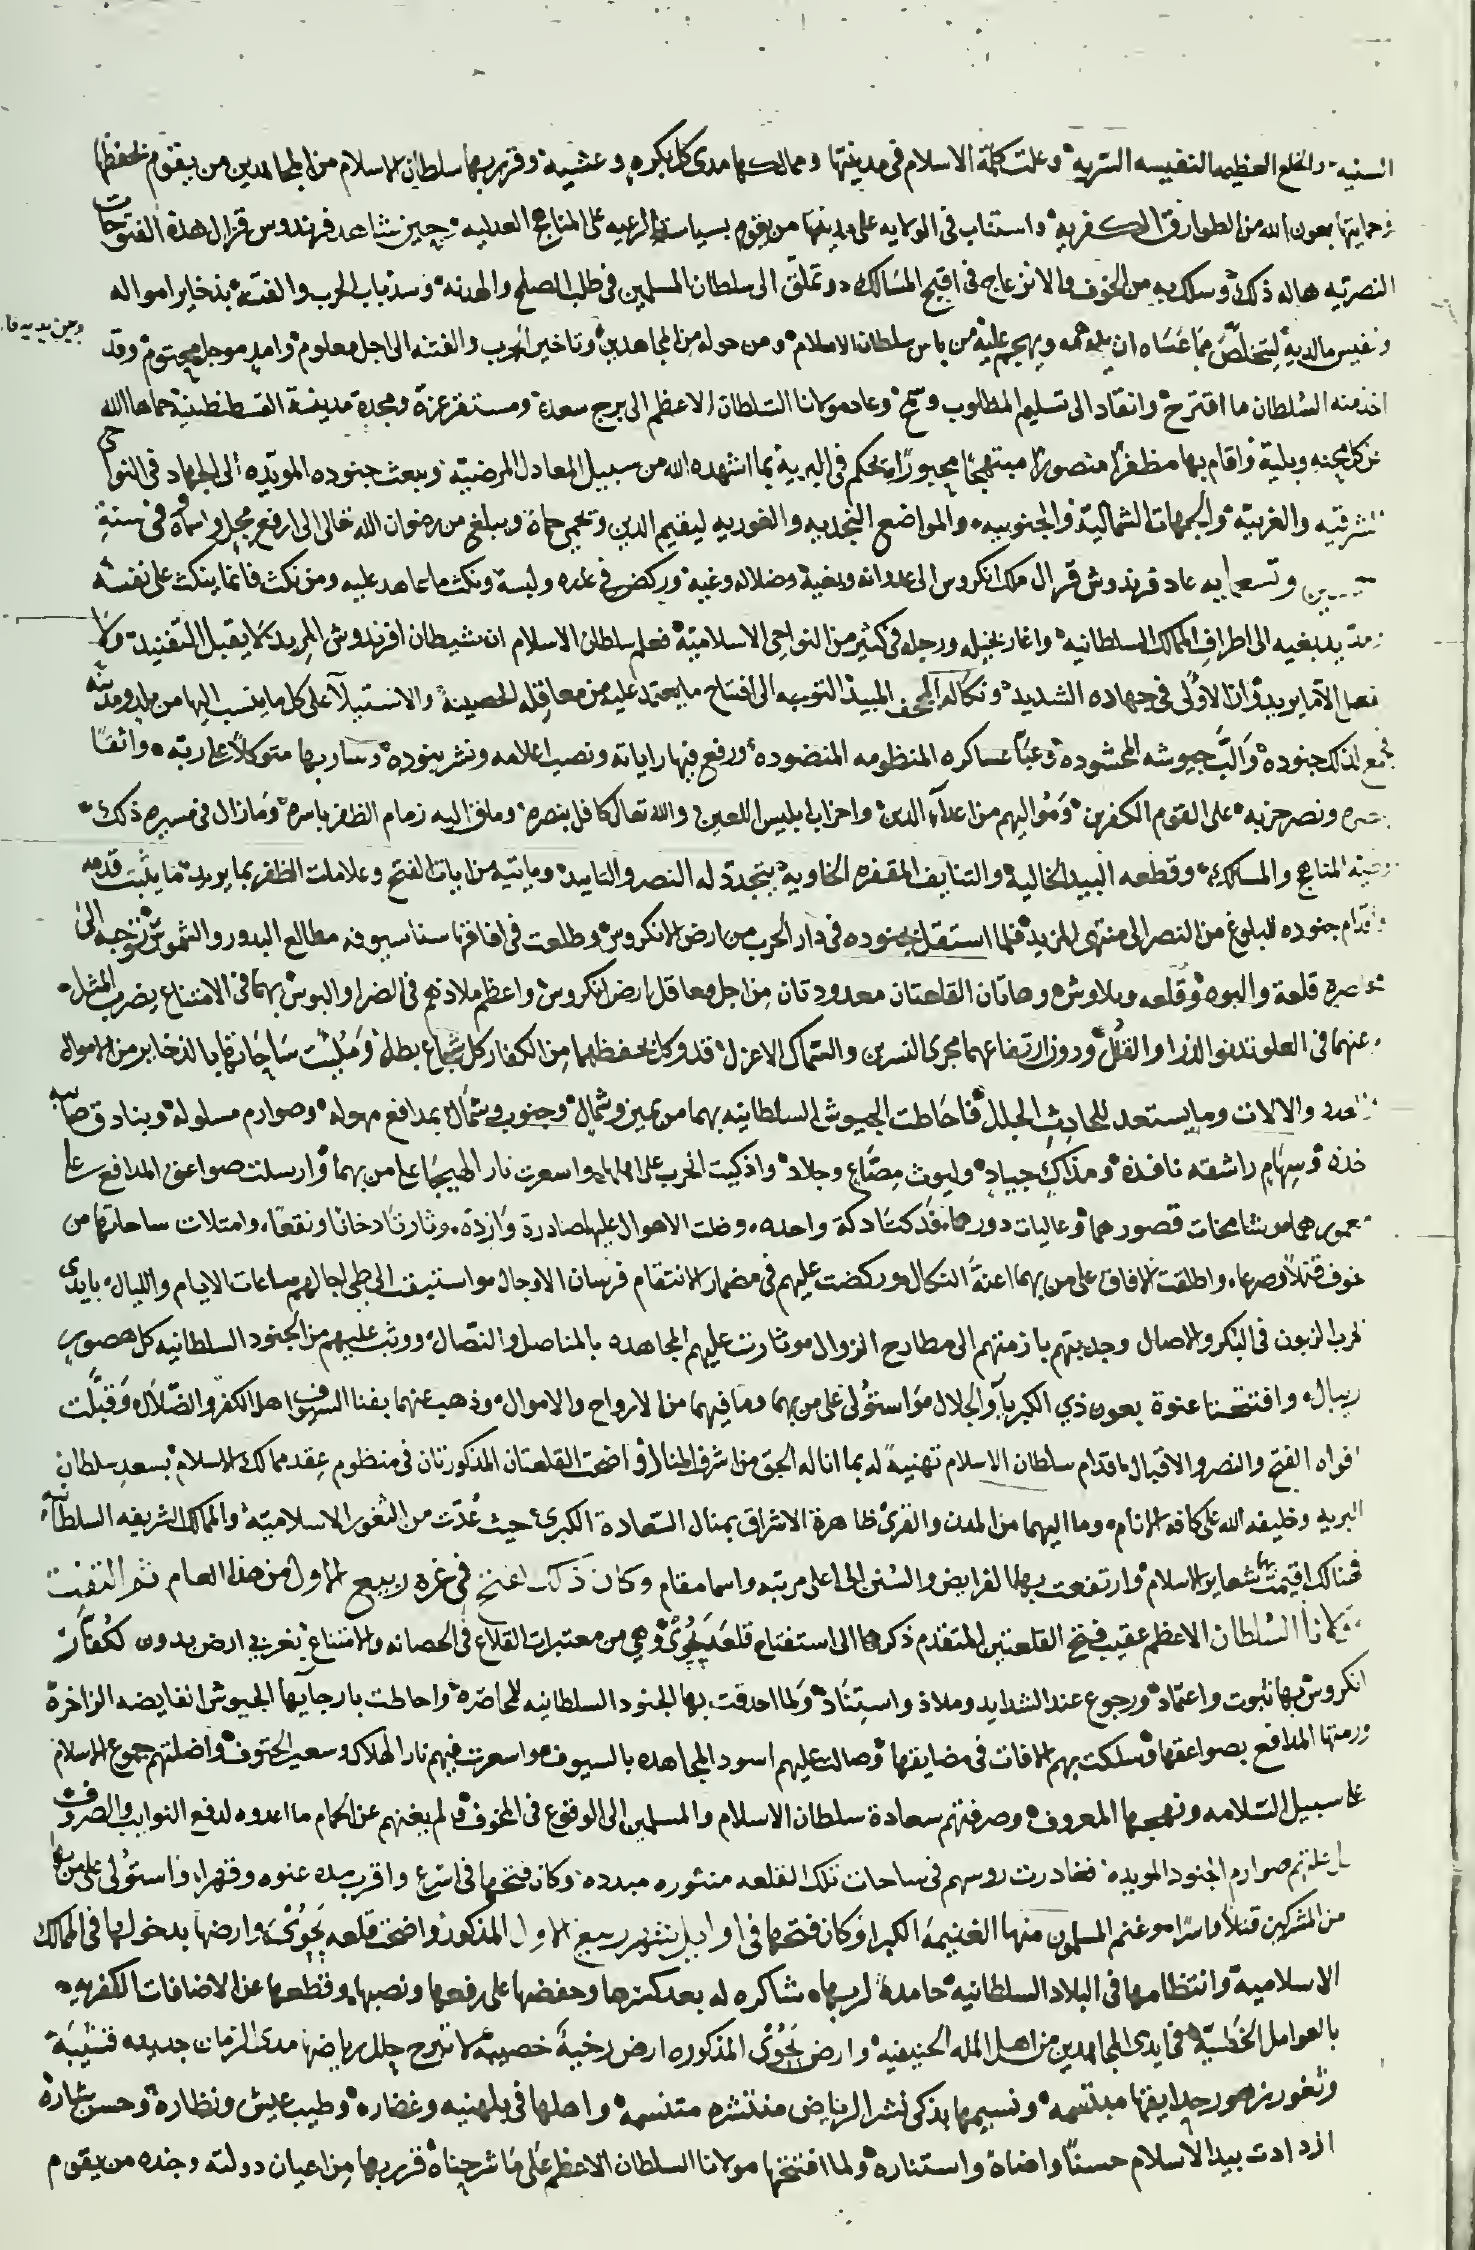 السنيه والخلع العظيمه النفيسه السريه وعلت كلمة الاسلام في مدينتها وممالكها مدى كل بكره وعشيه وقرر بها سلطان الاسلام من المجاهدين من يقوم بحفظها
وحمايتها بعون الله من الطوارق الكفريه واستناب في الولايه على مدينتها من يقوم بسياسة الرعيه على المناهج العدليه وحين شاهد فرندوس قرال هذه الفتوحات
النصريه هاله ذلك وسلك به من الخوف والانزعاج في اقبح المسالك وتملق الى سلطان المسلمين في طلب الصلح والهدنه وسد باب الحرب والفتنه بذخاير امواله
ونفيس مالديه ليتخلص مما عساه ان يدهمه ويهجم عليه من باس سلطان الاسلام ومن حوله من المجاهدين وتاخير الحرب والفتنه الى اجل معلوم وامد موجل محتوم وقد
اخذ منه السلطان ما اقترح وانقاد الى تسليم المطلوب وعاد مولانا السلطان الاعظم الى برج سعده ومستقر عزة ومجده مدينة القسطنطينية حماها الله
من كل محنه وبلية واقام بها مظفرا منصورا مبتهجا محبورا يحكم في البرية بما اشهده الله من سبيل المعادل المرضية ويبعث جنوده المويده الى الجهاد في النواحي
الشرقيه والغربية والجهات الشمالية والجنوبيه والمواضع النجديه والغوريه ليقيم الدين ويحمي حماه ويبلغ من رضوان الله تعالى الى ارفع محل واسماه وفي سنة
وتسعمايه عاد فرندوش قرال ملك انكروس الى عدوانه وبغيه وضلاله وغيه وركض في عمهه ولبسه ونكث ما عاهد عليه ومن نكث فانما ينكث على نفسه
ومد يد بغيه الى اطراف الممالك السلطانيه واغار بخيله ورجله في كثير من النواحي الاسلامية فعلم سلطان الاسلام ان شيطان افرندوش المريد لا يقبل التفنيد ولا
يفعل الا ما يريد وان الاولى في جهاده الشديد ونكاله المجحف المبيد التوجه الى افتتاح ما يعتمد عليه من معاقله الحصينة والاستيلا على كل ما ينسب اليها من بلد ومدينه
فجمع لذلك جنوده والب جيوشه المحشوده وعبا عساكره المنظومه المنضوده ورفع فيها راياته ونصب اعلامه ونشر بنوده وسار بها متوكلا على ربه واثقا
بنصره ونصر حزبه على القوم الكفرين ومواليهم من اعداء الدين واحزاب ابليس اللعين والله تعالى كافل بنصره وملق اليه زمام الظفر باسره وما زال في مسيره ذلك
المناهج والمسالك وقطعه البيد الخالية والتنايف المقفره الخاوية يتجدد له النصر والتاييد وياتيه من ايات الفتح وعلامات الظفر بما يريد ما يثبت قدمه
واقدام جنوده للبلوغ من النصر الى منتهى المزيد فلما استقل بجنوده في دار الحرب من ارض الانكروس وطلعت في افاقها سنا سيوفه مطالع البدور والشموس توجه الى
محاصرة قلعة والبوه وقلعه وبلاوش وهاتان القلعتان معدودتان من اجل معاقل ارض انكروس واعظم ملاذهم في الضرا والبوس بهما في الامتناع يضرب المثل
وعنهما في العلو تدنو الذرا والقلل ودون ارتفاعهما مجرى النسرين والسماك الاعزل قد وكل بحفظهما من الكفار كل شجاع بطل وملئت ساحاتهما بالذخاير من الاموال
والعدد والالات وما يستعد للحادث الجلل فاحاطت الجيوش السلطانيه بهما من يمين وشمال وجنوب وشمال بمدافع مهوله وصوارم مسلولة وبنادق صايبه
وسهام راشقه نافذة ومذاكي جياد وليوث مصاع وجلاد واذكيت الحرب على اهلها واسعرت نار الهيجا على من بهما وارسلت صواعق المدافع على
معمورهما من شامخات قصورهما وعاليات دورهما فدكتا دكة واحده وظلت الاهوال عليها صادرة وازدة وثارتا دخانا ونقعا وامتلات ساحاتهما من
قتلا وصرعا واطلقت الافاق على من بهما اعنة النكال وركضت عليهم في مضمار الانتقام فرسان الاوجال واستنيفت الى طي اجالهم ساعات الايام والليال بايدي
الحرب الزبون في البكر والاصال وجذبتهم بازمتهم الى مطارح الزوال وثارت عليهم المجاهده بالمناصل والنصال ووثب عليهم من الجنود السلطانيه كل هصور
ريبال وافتتحتا عنوة بعون ذي الكبريا والجلال واستولى على من بهما وما فيهما من الارواح والاموال وذهب عنهما بفنا السيوف اهل الكفر والضلال وقبلت
افواه الفتح والنصر والاقبال اقدام سلطان الاسلام تهنية له بما اناله الحق من اشرف المنال واضحت القلعتان المذكورتان في منظوم عقد ممالك الاسلام بسعد سلطان
البريه وخليفه الله على كافه الانام وما اليهما من المدن والقرى ظاهرة الاشراق بمنال السعادة الكبرى حيث عدت من الثغور الاسلامية والممالك الشريفه السلطانيه
فهنالك اقيمت شعاير الاسلام وارتفعت بهما الفرايض والسنن الى اعلى مرتبه واسما مقام وكان ذلك الفتح في غره ربيع الاول من هذا العام ثم التفت
مولانا السلطان الاعظم عقيب فتح القلعتين المتقدم ذكرهما الى استفتاح قلعة بجوى وهي من معتبرات القلاع في الحصانه والامتناع بغربي ارض بدون لكفار
انكروس بها ثبوت واعتماد ورجوع عند الشدايد وملاذ واستناد ولما احدقت بها الجنود السلطانيه للمحاصره واحاطت بارجايها الجيوش الفايضه الزاخرة
ورمتها المدافع بصواعقها وسلكت بهم الافات في مضايقها وصالت عليهم اسود المجاهده بالسيوف واسعرت فيهم نار الهلاك وسعير الحتوف واضلتهم جموع الاسلام
على سبيل السلامه ونهجها المعروف وصرفتهم سعادة سلطان الاسلام والمسلمين الى الوقوع في المخوف ولم يغنهم عن الحمام ما اعدوه لدفع النوايب والصروف
صوارم الجنود المويده فغادرت روسهم في ساحات تلك القلعه منثوره مبدده وكان فتحها في اسرع واقرب مده عنوه وقهرا واستولى على من بها
من المشركين قتلا واسرا وغنم المسلمون منها الغنيمه الكبرا وكان فتحها في اوايل شهر ربيع الاول المذكور واضحت قلعه بجوى وارضها بدخولها في الممالك
الاسلامية وانتظامها في البلاد السلطانيه حامدة لربها شاكره له بعد كسرها وخفضها على رفعها ونصبها وقطعها عن الاضافات الكفريه
بالعوامل الخطية في ايدي المجاهدين من اهل المله الحنيفيه وارض بجوى المذكوره ارض رخية خصيبة لا تبرح حلل رياضها مدى الزمان جديده قشيبة
وثغور زهور حدايقها مبتسمه ونسيمها بذكي نشر الرياض منتشره متنسمه واهلها في بلهنيه وغضاره وطيب عيش ونظارة وحسن شارة
ازدادت بيد الاسلام حسنا واضاة واستناره ولما افتتحها مولانا السلطان الاعظم على ما شرحناه قرر بها من اعيان دولته وجنده من يقوم